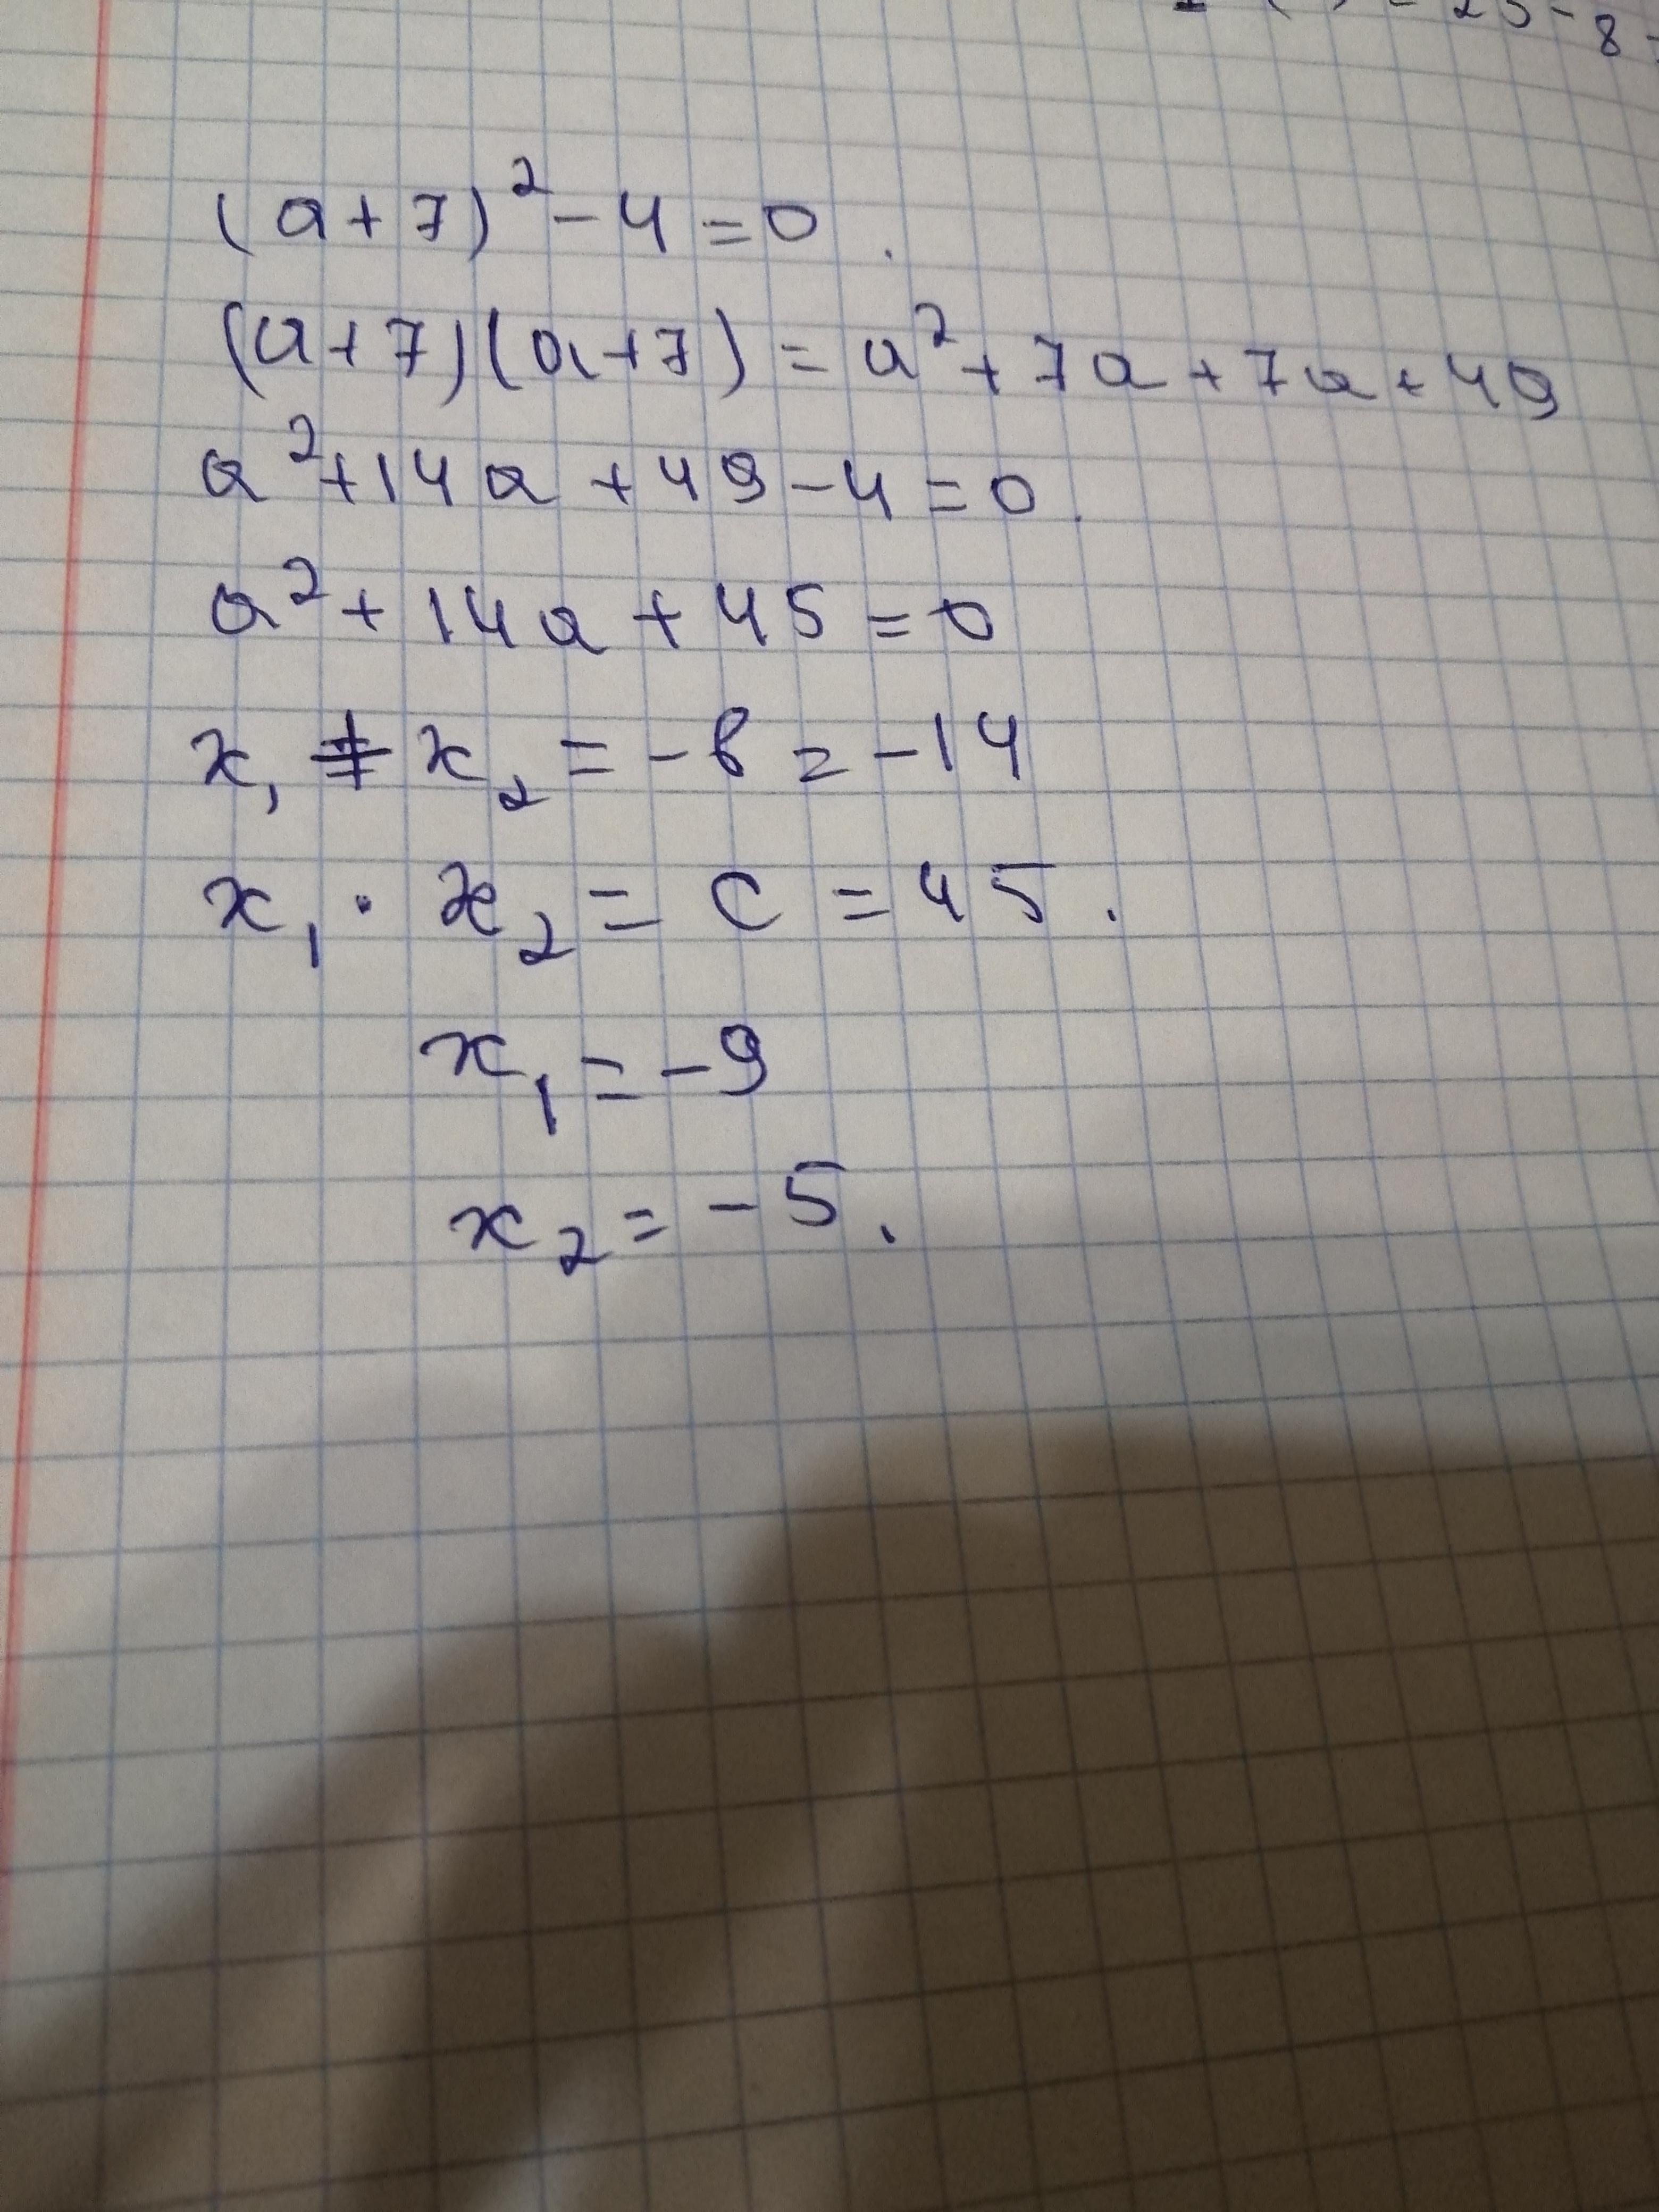 (a+7)²-4=0.
(a+7)(a+7)=a²+7a+7a+49
a²+14a+49-4=0.
a²+14a+45=0
x₁+x₂=-b=-14
x₁·x₂=c=45.
x₁=-9
x₂=-5.